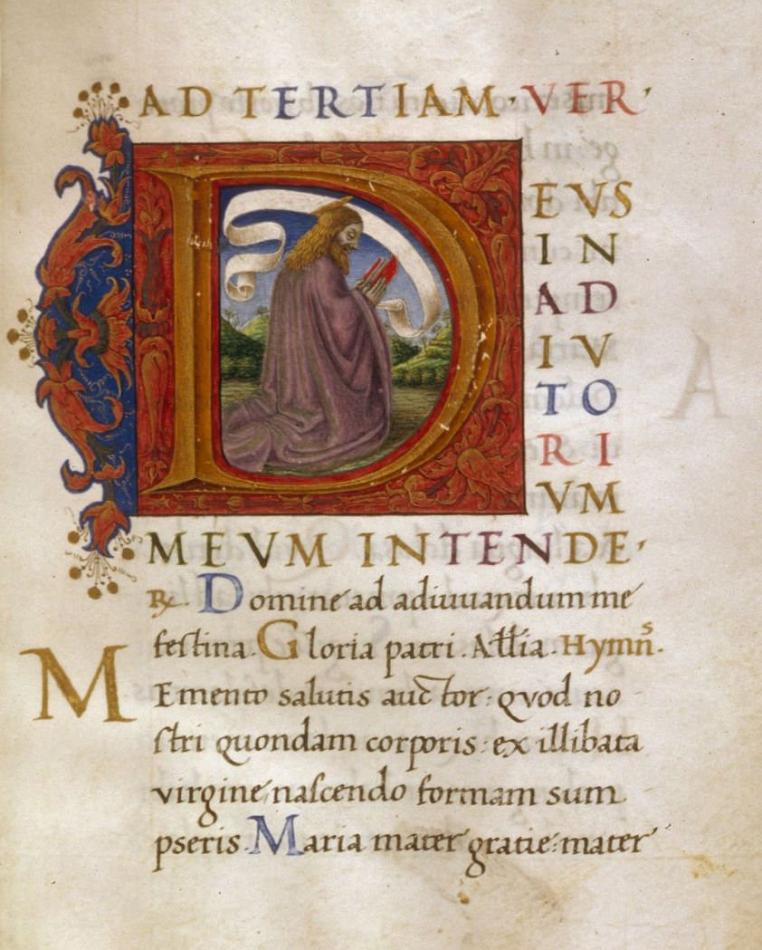 AD TERTIAM · VER ·
DEVS
IN
AD
IV
TO
RI
VM
MEVM INTENDE ·
℟ Domine ad adiuuandum me
festina. Gloria patri. Al̄l̄ia. Hymn̄s.
Memento salutis auctor: quod no
stri quondam corporis: ex illibata
virgine nascendo formam sum
pseris. Maria mater gratie: mater